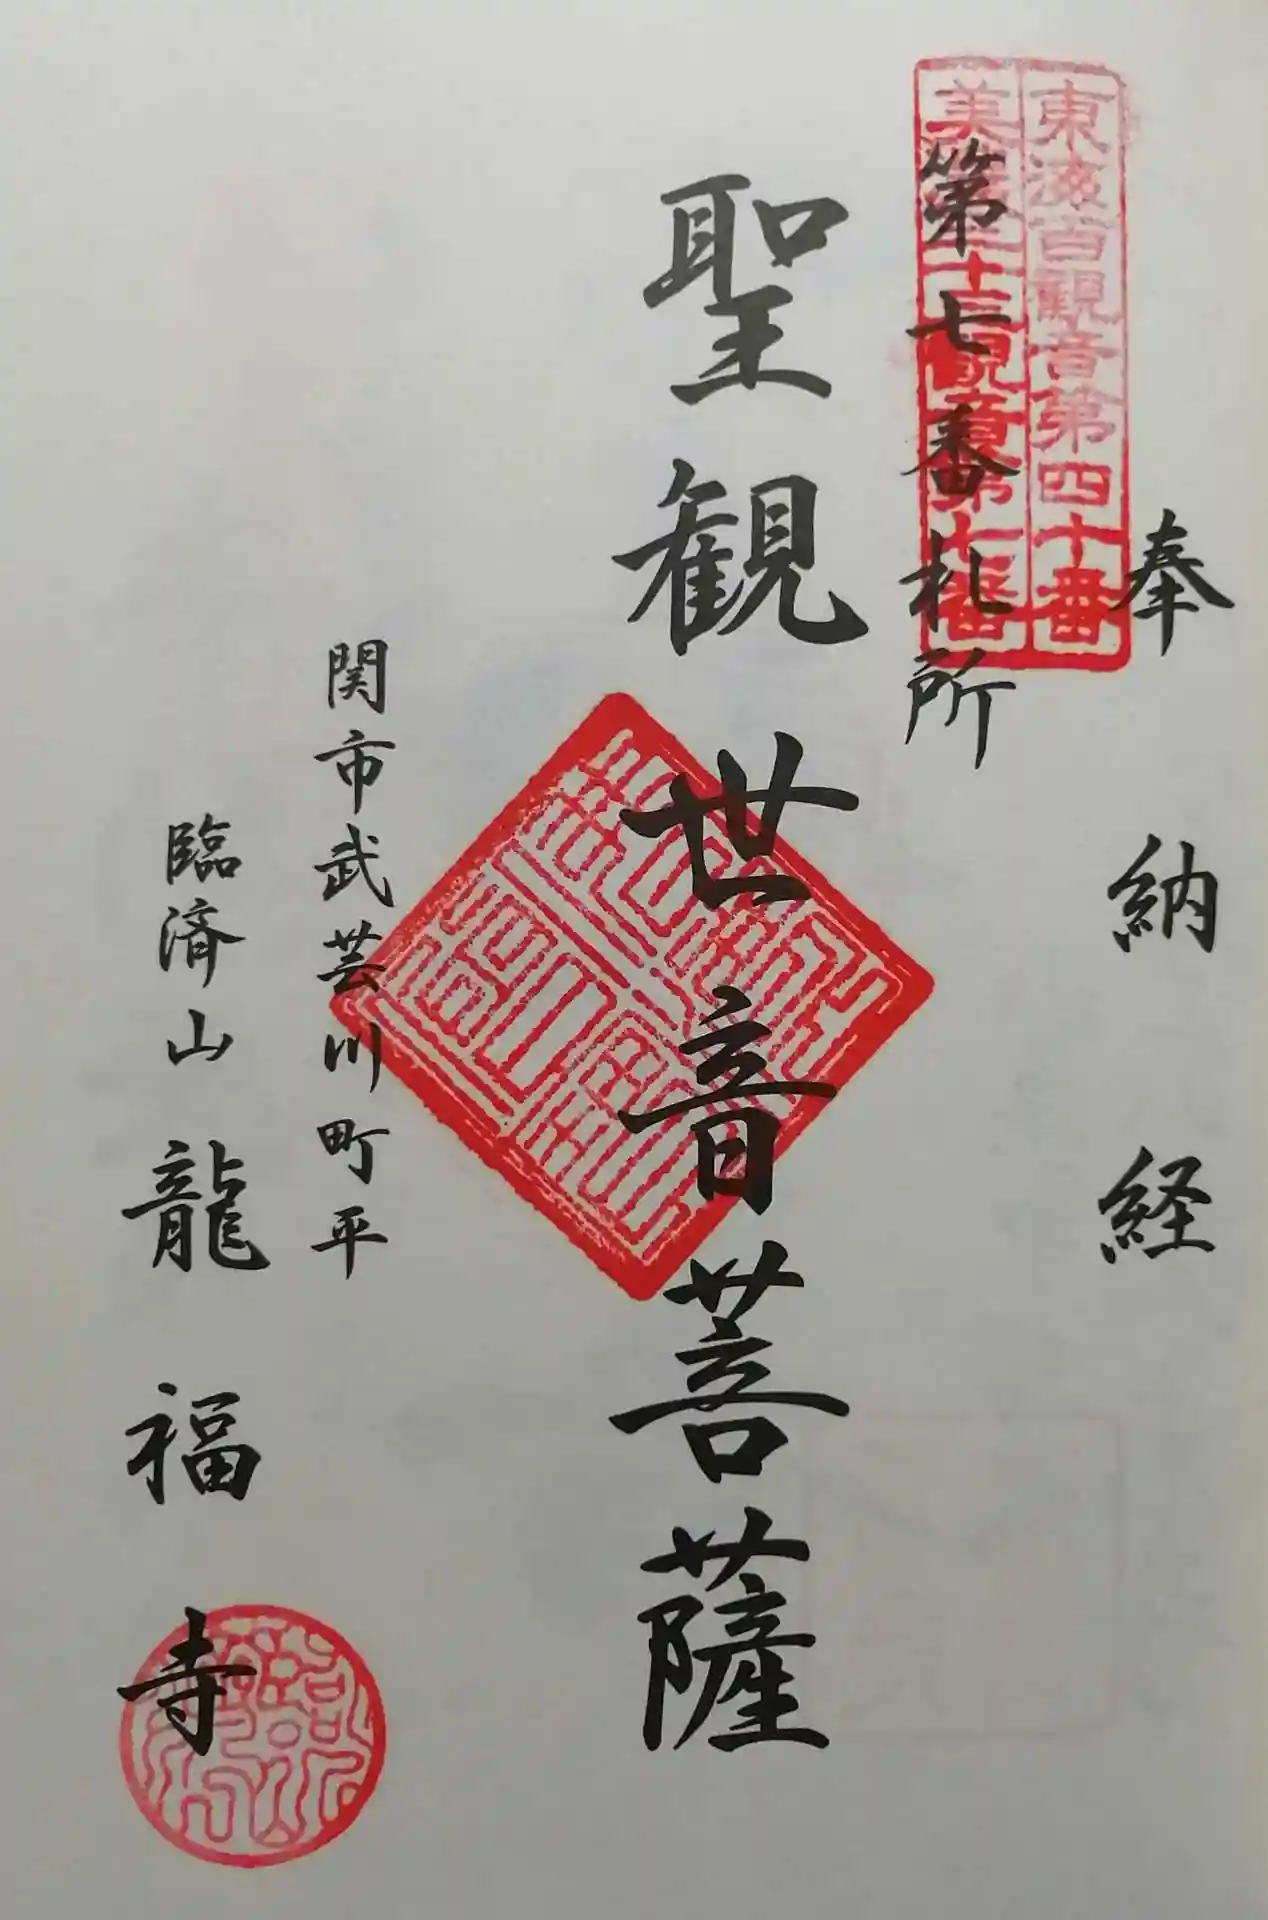 奉納経
東海百観音第四十番
美濃三十三観音第七番
第七番札所
聖観世音菩薩
関市武芸川町平
臨済山龍福寺